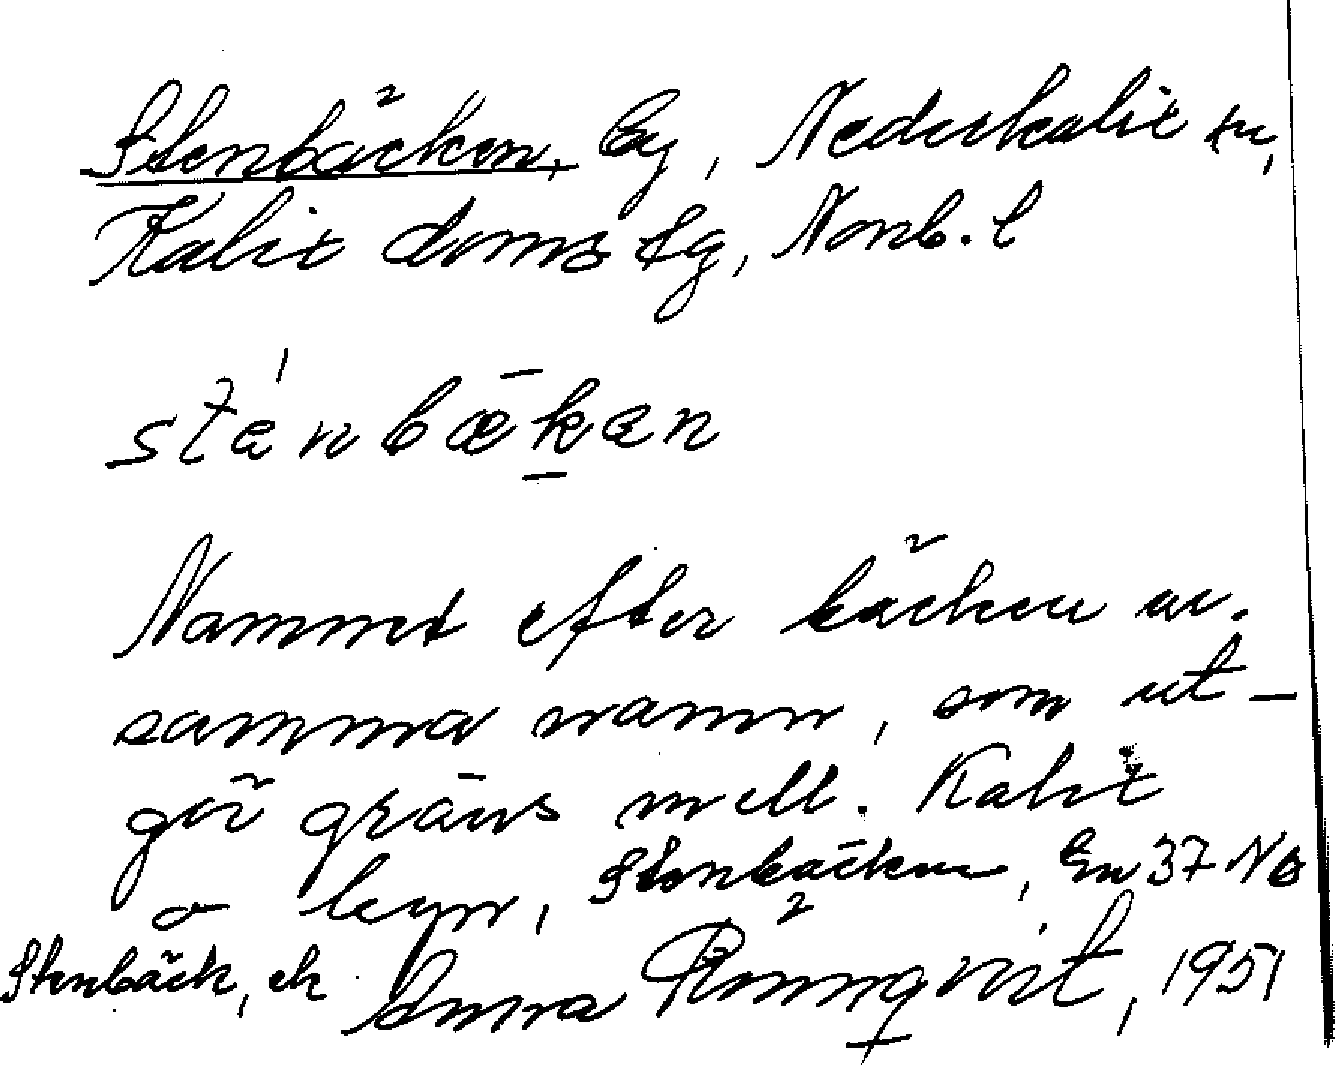 Stenbäcken, By, Nederkalix sn,
Kalix doms sg, Norrb. l
sténbækan
Namnet efter bäcken av.
samma namn, som ut-
gör gräns mell. Kalix
o byn, Stenbäcken, En 37 NO
Stenbäck, ek Anna Rönnqvist, 1951